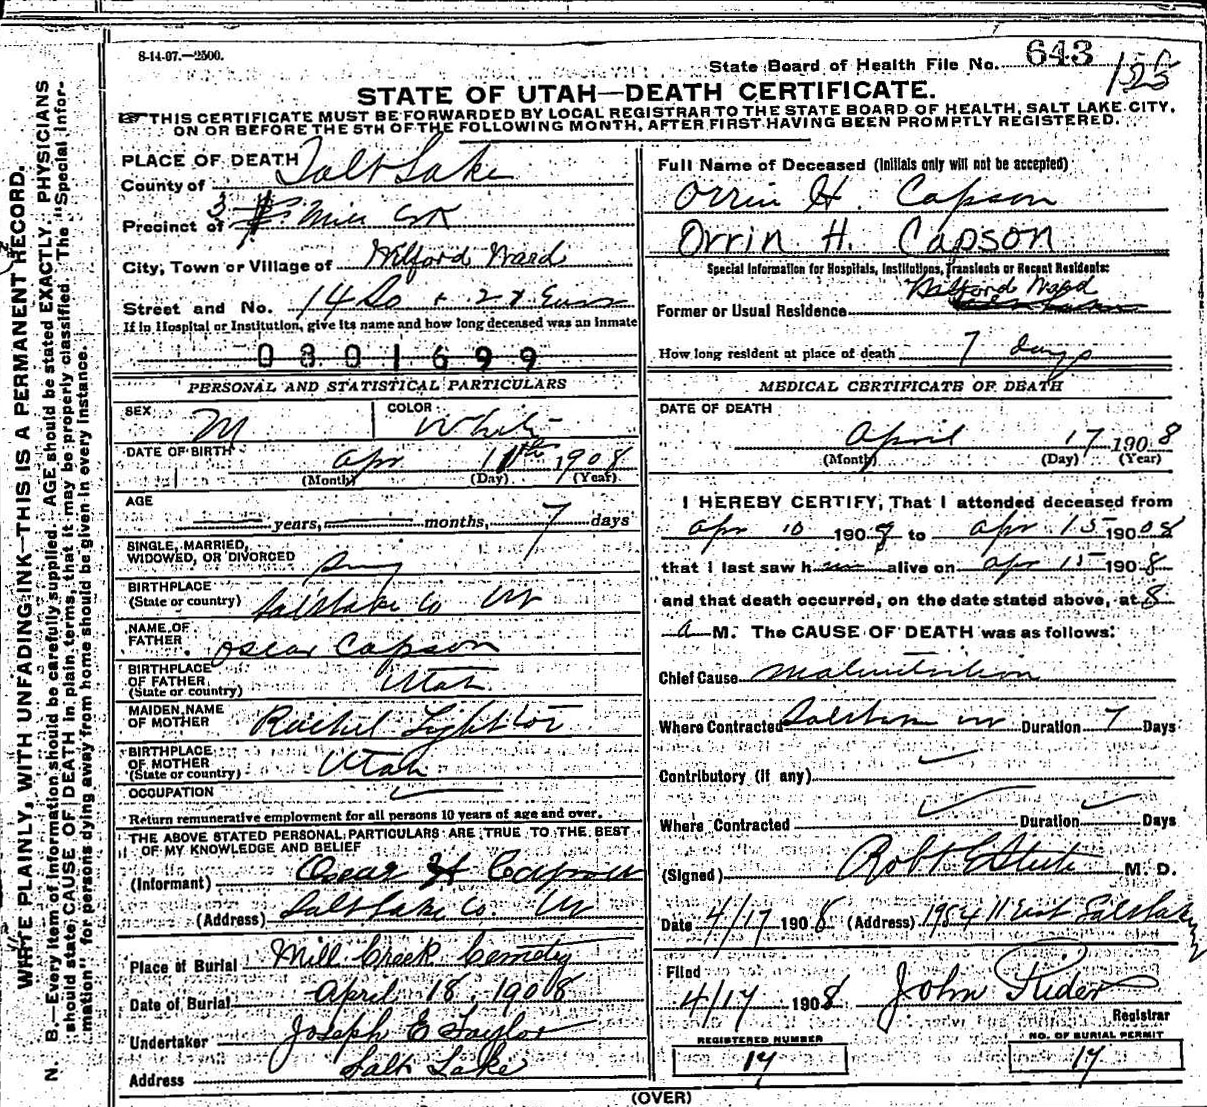 8-14-07.—2500.
State Board of Health File No. 643
STATE OF UTAH—DEATH CERTIFICATE.
THIS CERTIFICATE MUST BE FORWARDED BY LOCAL REGISTRAR TO THE STATE BOARD OF HEALTH, SALT LAKE CITY,
ON OR BEFORE THE 5TH OF THE FOLLOWING MONTH, AFTER FIRST HAVING BEEN PROMPTLY REGISTERED.
WRITE PLAINLY, WITH UNFADING INK—THIS IS A PERMANENT RECORD.
N. B.—Every item of information should be carefully supplied. AGE should be stated EXACTLY. PHYSICIANS
should state CAUSE OF DEATH in plain terms, that it may be properly classified. The "Special Infor-
mation" for persons dying away from home should be given in every instance.
PLACE OF DEATH
County of Salt Lake
Precinct of Mill
City, Town or Village of Wilford Ward
Street and No. 14 So
If in Hospital or Institution, give its name and how long deceased was an inmate
0301699
PERSONAL AND STATISTICAL PARTICULARS
SEX M COLOR White
DATE OF BIRTH Apr 11th 1908
(Month) (Day) (Year)
AGE
years, months, 7 days
SINGLE, MARRIED,
WIDOWED, OR DIVORCED
BIRTHPLACE
(State or country) Salt Lake Co Ut
NAME OF
FATHER Oscar Capson
BIRTHPLACE
OF FATHER
(State or country) Utah
MAIDEN NAME
OF MOTHER Rachel
BIRTHPLACE
OF MOTHER
(State or country) Utah
OCCUPATION
Return remunerative employment for all persons 10 years of age and over.
THE ABOVE STATED PERSONAL PARTICULARS ARE TRUE TO THE BEST
OF MY KNOWLEDGE AND BELIEF
(Informant) Oscar H Capson
(Address) Salt Lake Co. Ut
Place of Burial Mill Creek Cemetery
Date of Burial April 18, 1908
Undertaker Joseph E Taylor
Address Salt Lake
Full Name of Deceased (Initials only will not be accepted)
Orrin H. Capson
Orrin H. Capson
Special Information for Hospitals, Institutions, Transients or Recent Residents:
Wilford Ward
Former or Usual Residence
How long resident at place of death 7 days
MEDICAL CERTIFICATE OF DEATH
DATE OF DEATH
April 17 1908
(Month) (Day) (Year)
I HEREBY CERTIFY, That I attended deceased from
Apr 10 1908 to Apr 15 1908
that I last saw him alive on Apr 15 1908
and that death occurred, on the date stated above, at 8
a M. The CAUSE OF DEATH was as follows:
Chief Cause Malnutrition
Where Contracted Duration 7 Days
Contributory (if any)
Where Contracted Duration Days
(Signed) Robt M. D.
Date 4/17 1908 (Address) 1954 11 East Salt Lake
Filed
4/17 1908 John Rider
Registrar
REGISTERED NUMBER
17
NO. OF BURIAL PERMIT
17
(OVER)